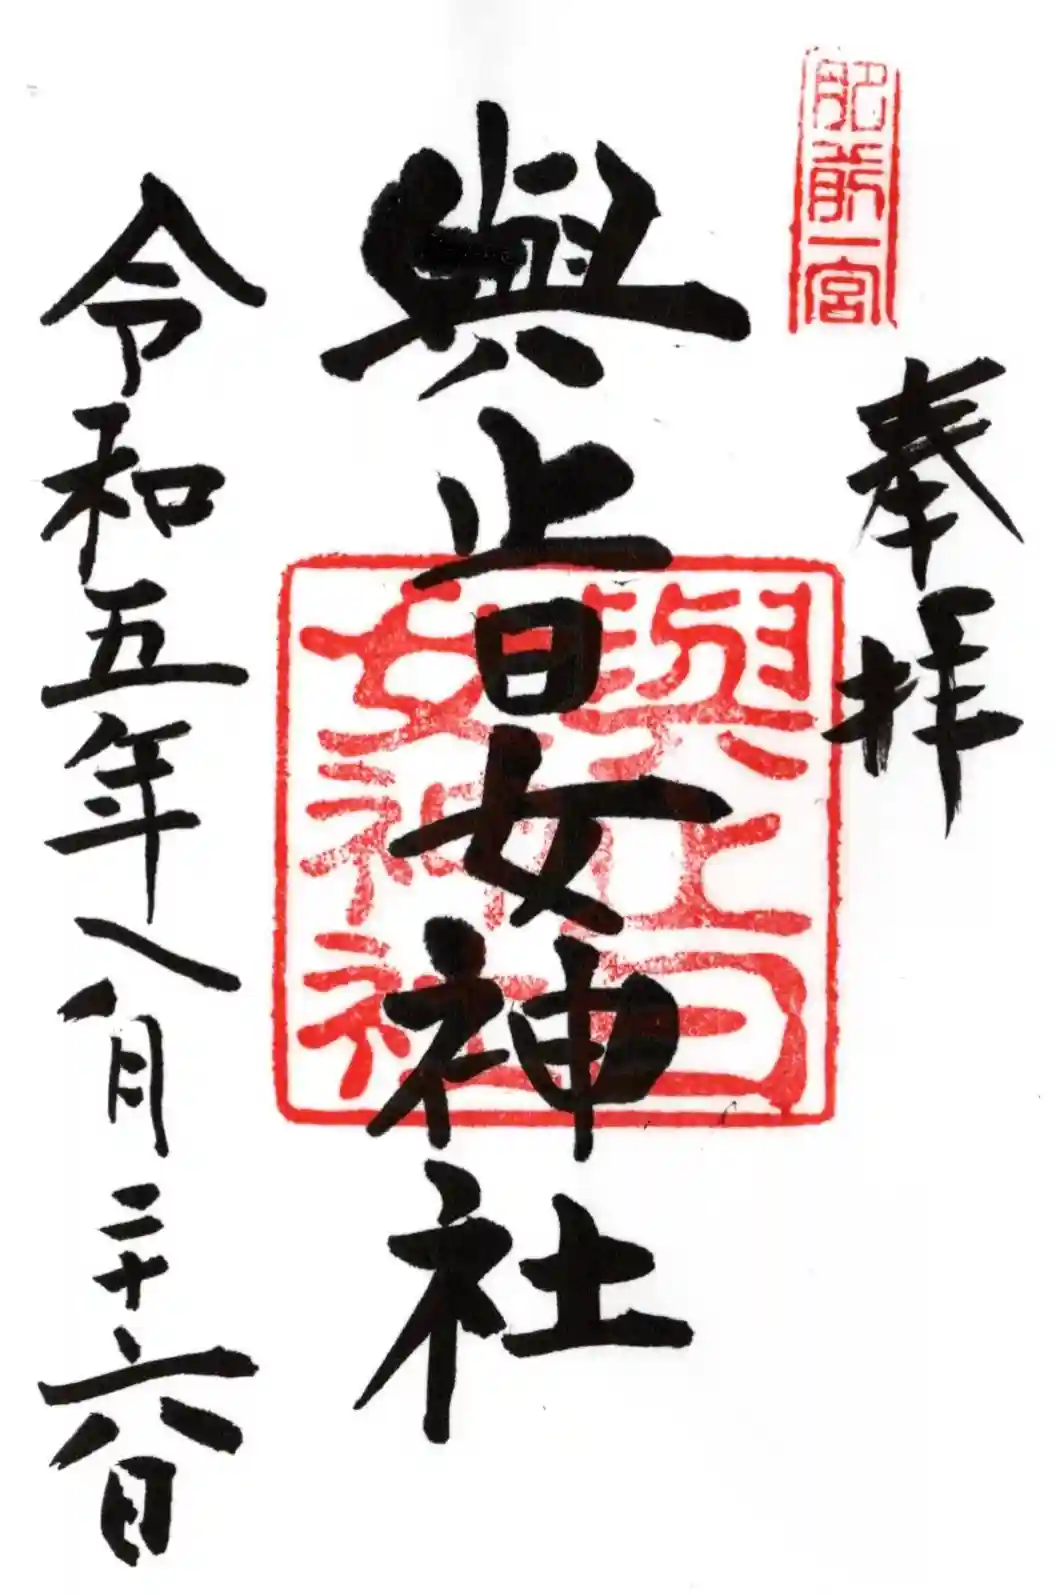 肥前一宮
奉拝
與止日女神社
與止日
女神社
令和五年八月二十六日